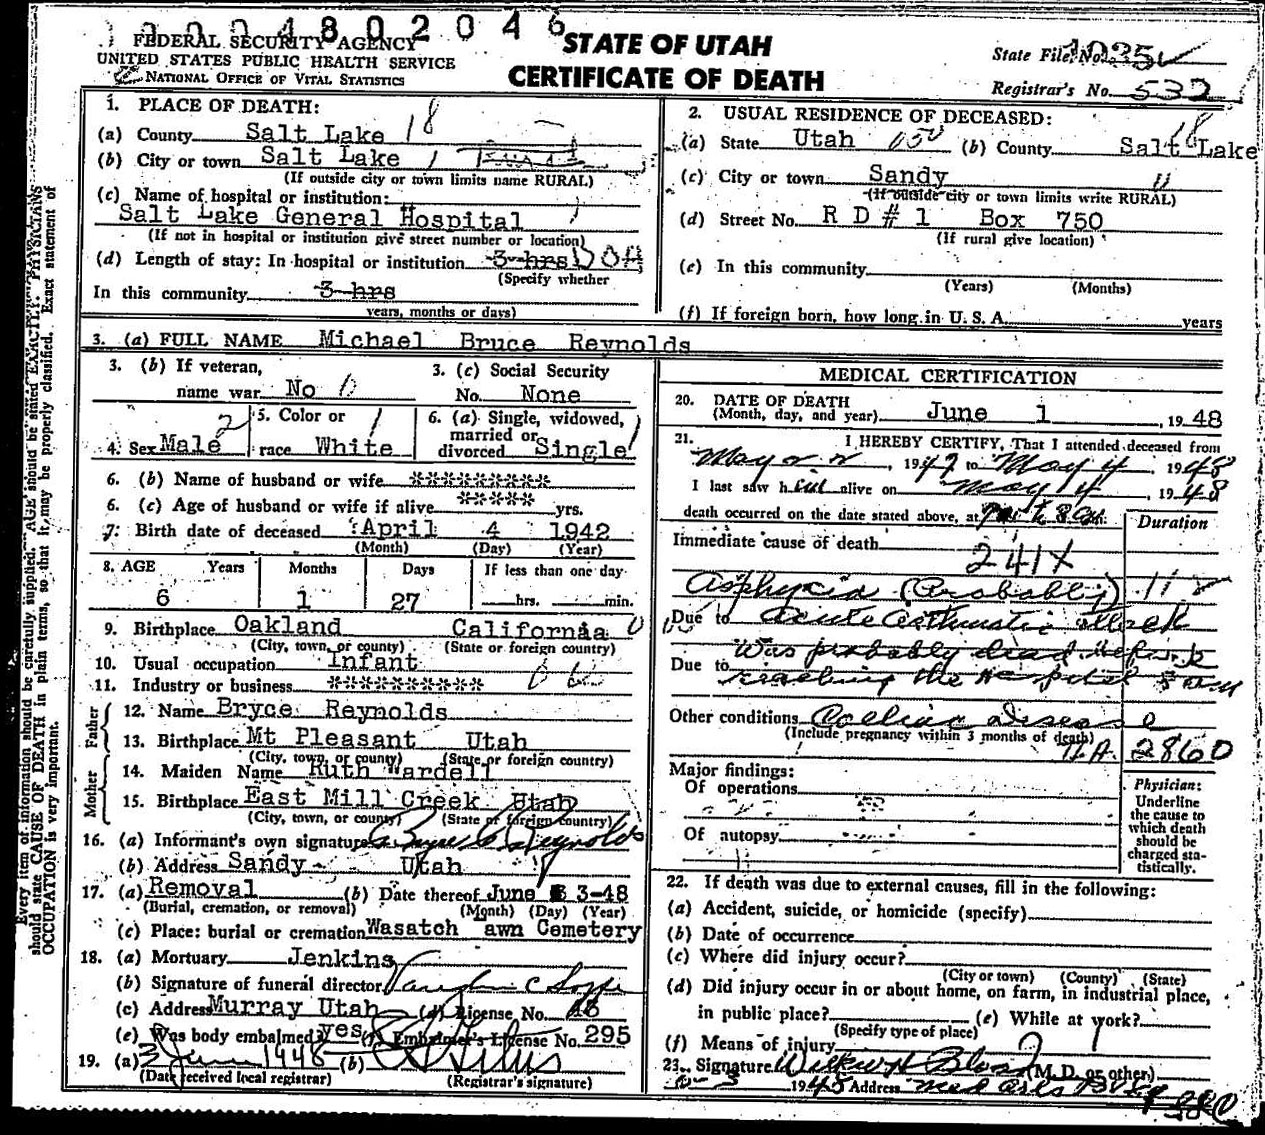 1 0 0 4 8 0 2 0 4 6
FEDERAL SECURITY AGENCY
UNITED STATES PUBLIC HEALTH SERVICE
NATIONAL OFFICE OF VITAL STATISTICS
STATE OF UTAH
CERTIFICATE OF DEATH
State File No.
Registrar's No. 532
1. PLACE OF DEATH:
(a) County Salt Lake 18
(b) City or town Salt Lake 1
(If outside city or town limits name RURAL)
(c) Name of hospital or institution:
Salt Lake General Hospital
(If not in hospital or institution give street number or location)
(d) Length of stay: In hospital or institution 3 hrs DOA
(Specify whether
In this community 3 hrs
years, months or days)
2. USUAL RESIDENCE OF DECEASED:
(a) State Utah 050 (b) County Salt Lake 18
(c) City or town Sandy
(If outside city or town limits write RURAL)
(d) Street No. R D # 1 Box 750
(If rural give location)
(e) In this community
(Years) (Months)
(f) If foreign born, how long in U. S. A. years
3. (a) FULL NAME Michael Bruce Reynolds
3. (b) If veteran,
name war No 0
3. (c) Social Security
No. None
4. Sex Male 2
5. Color or
race White 1
6. (a) Single, widowed,
married or
divorced Single 1
6. (b) Name of husband or wife **********
6. (c) Age of husband or wife if alive ***** yrs.
7. Birth date of deceased April 4 1942
(Month) (Day) (Year)
8. AGE Years Months Days If less than one day
6 1 27 hrs. min.
9. Birthplace Oakland California
(City, town, or county) (State or foreign country)
10. Usual occupation Infant
11. Industry or business ***********
Father
12. Name Bryce Reynolds
13. Birthplace Mt Pleasant Utah
(City, town, or county) (State or foreign country)
Mother
14. Maiden Name Ruth Wardell
15. Birthplace East Mill Creek Utah
(City, town, or county) (State or foreign country)
16. (a) Informant's own signature Bryce C Reynolds
(b) Address Sandy Utah
17. (a) Removal (b) Date thereof June 3-48
(Burial, cremation, or removal) (Month) (Day) (Year)
(c) Place: burial or cremation Wasatch awn Cemetery
18. (a) Mortuary Jenkins
(b) Signature of funeral director
(c) Address Murray Utah (d) License No.
(e) Was body embalmed yes (f) Embalmer's License No. 295
19. (a) 3 June 1948 (b)
(Date received local registrar) (Registrar's signature)
MEDICAL CERTIFICATION
20. DATE OF DEATH
(Month, day, and year) June 1 1948
21. I HEREBY CERTIFY, That I attended deceased from
, 1947 to May 4 1948
I last saw him alive on May 4, 1948
death occurred on the date stated above, at
Duration
Immediate cause of death
241X
Asphyxia (Probably)
Due to acute asthmatic attack
Was probably dead before
Due to reaching the Hospital
Other conditions Coeliac Disease
(Include pregnancy within 3 months of death)
2860
Major findings:
Of operations
Of autopsy
Physician:
Underline
the cause to
which death
should be
charged sta-
tistically.
22. If death was due to external causes, fill in the following:
(a) Accident, suicide, or homicide (specify)
(b) Date of occurrence
(c) Where did injury occur?
(City or town) (County) (State)
(d) Did injury occur in or about home, on farm, in industrial place,
in public place? (e) While at work?
(Specify type of place)
(f) Means of injury
23. Signature (M. D. or other)
Address Med Arts Bldg
Every item of information should be carefully supplied. AGE should be stated EXACTLY. PHYSICIANS
should state CAUSE OF DEATH in plain terms, so that it may be properly classified. Exact statement of
OCCUPATION is very important.